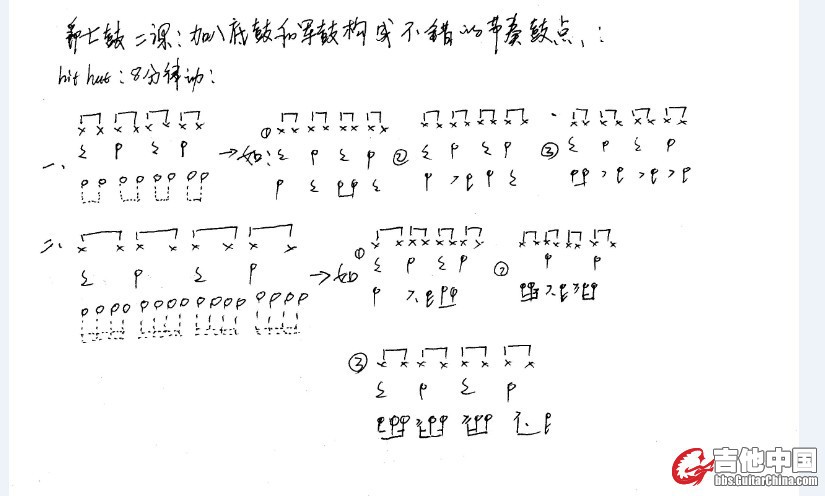 爵士鼓二课:加入底鼓和军鼓构成不错的节奏鼓点:
hit hut:8分律动:
一、
→如:① ② ③
二、
→如 ① ②
③
吉他中国
bbs.GuitarChina.com